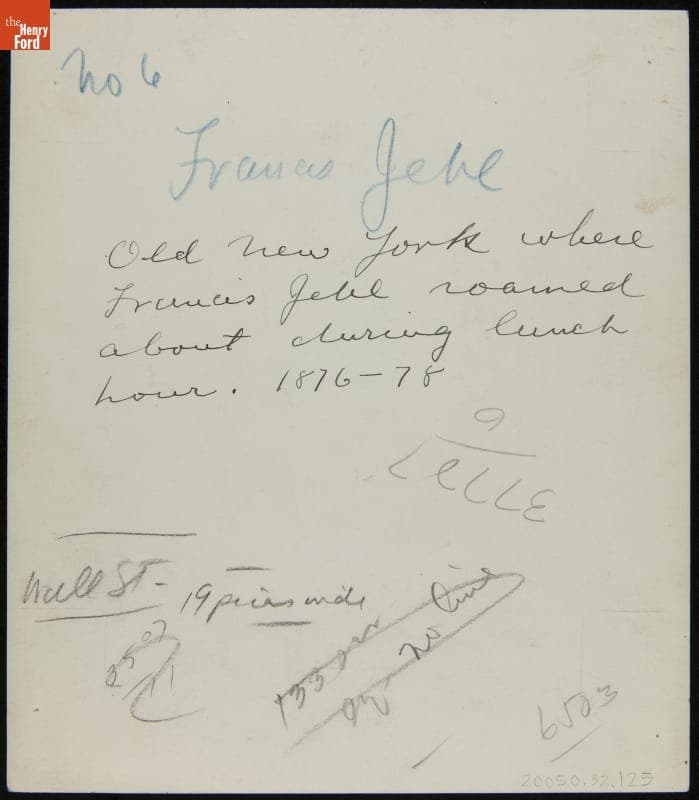 the
Henry
Ford
No 6
Francis Jehl
Old New York where
Francis Jehl roamed
about during lunch
hour. 1876-78
Wall St-
19 picas wide
133
no line
6503
20050.32.125